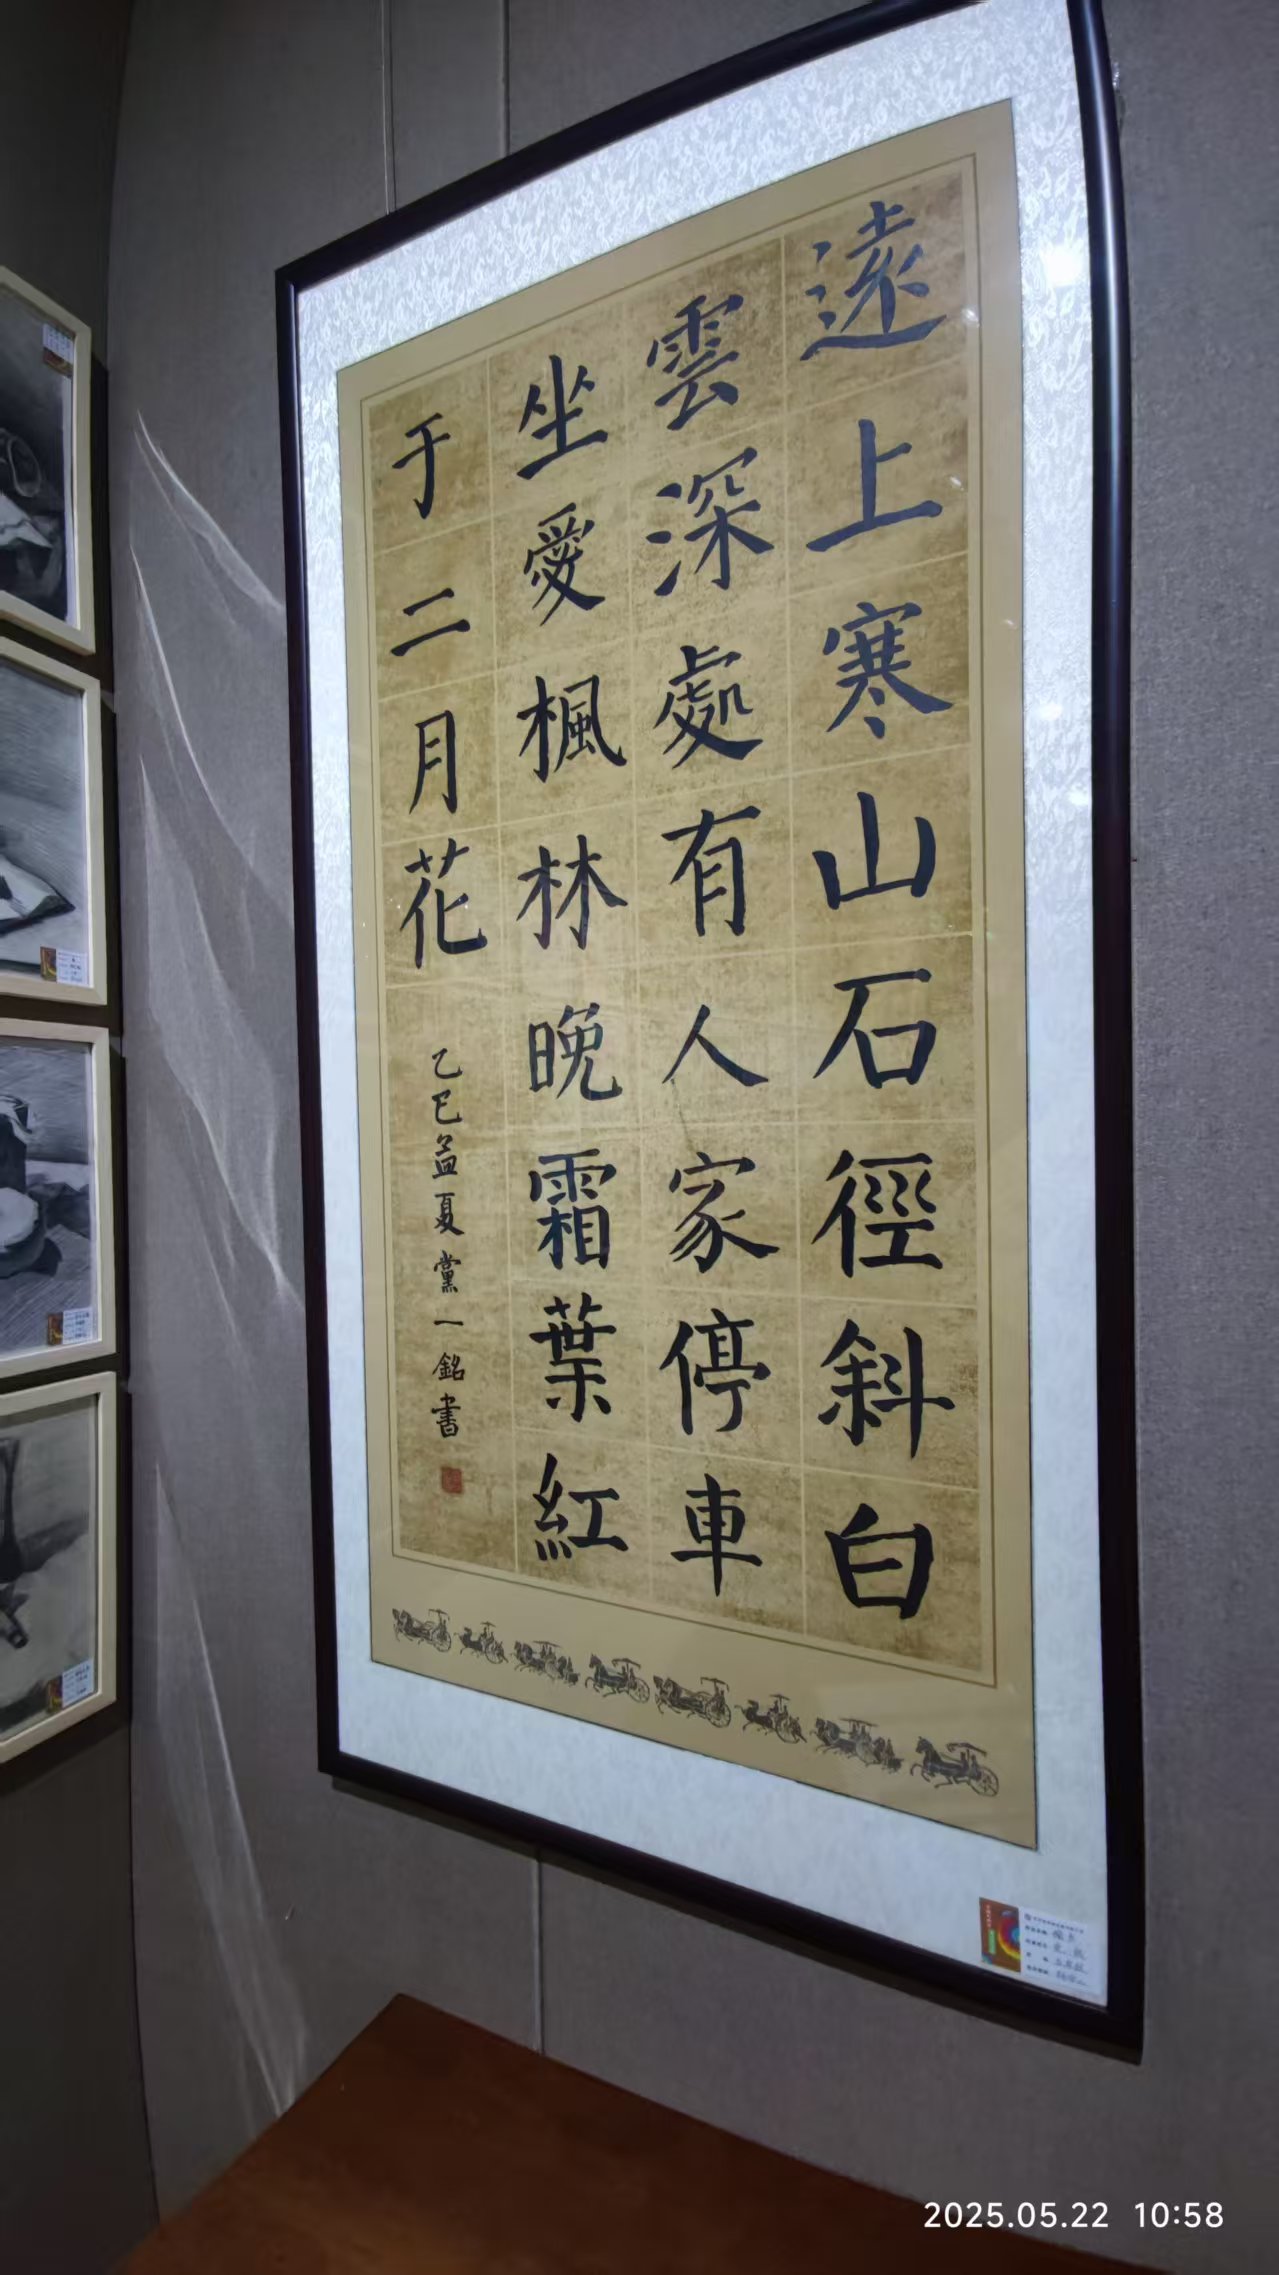 遠上寒山石徑斜白
雲深處有人家停車
坐愛楓林晚霜葉紅
于二月花
乙巳孟夏黨一銘書
2025.05.22 10:58